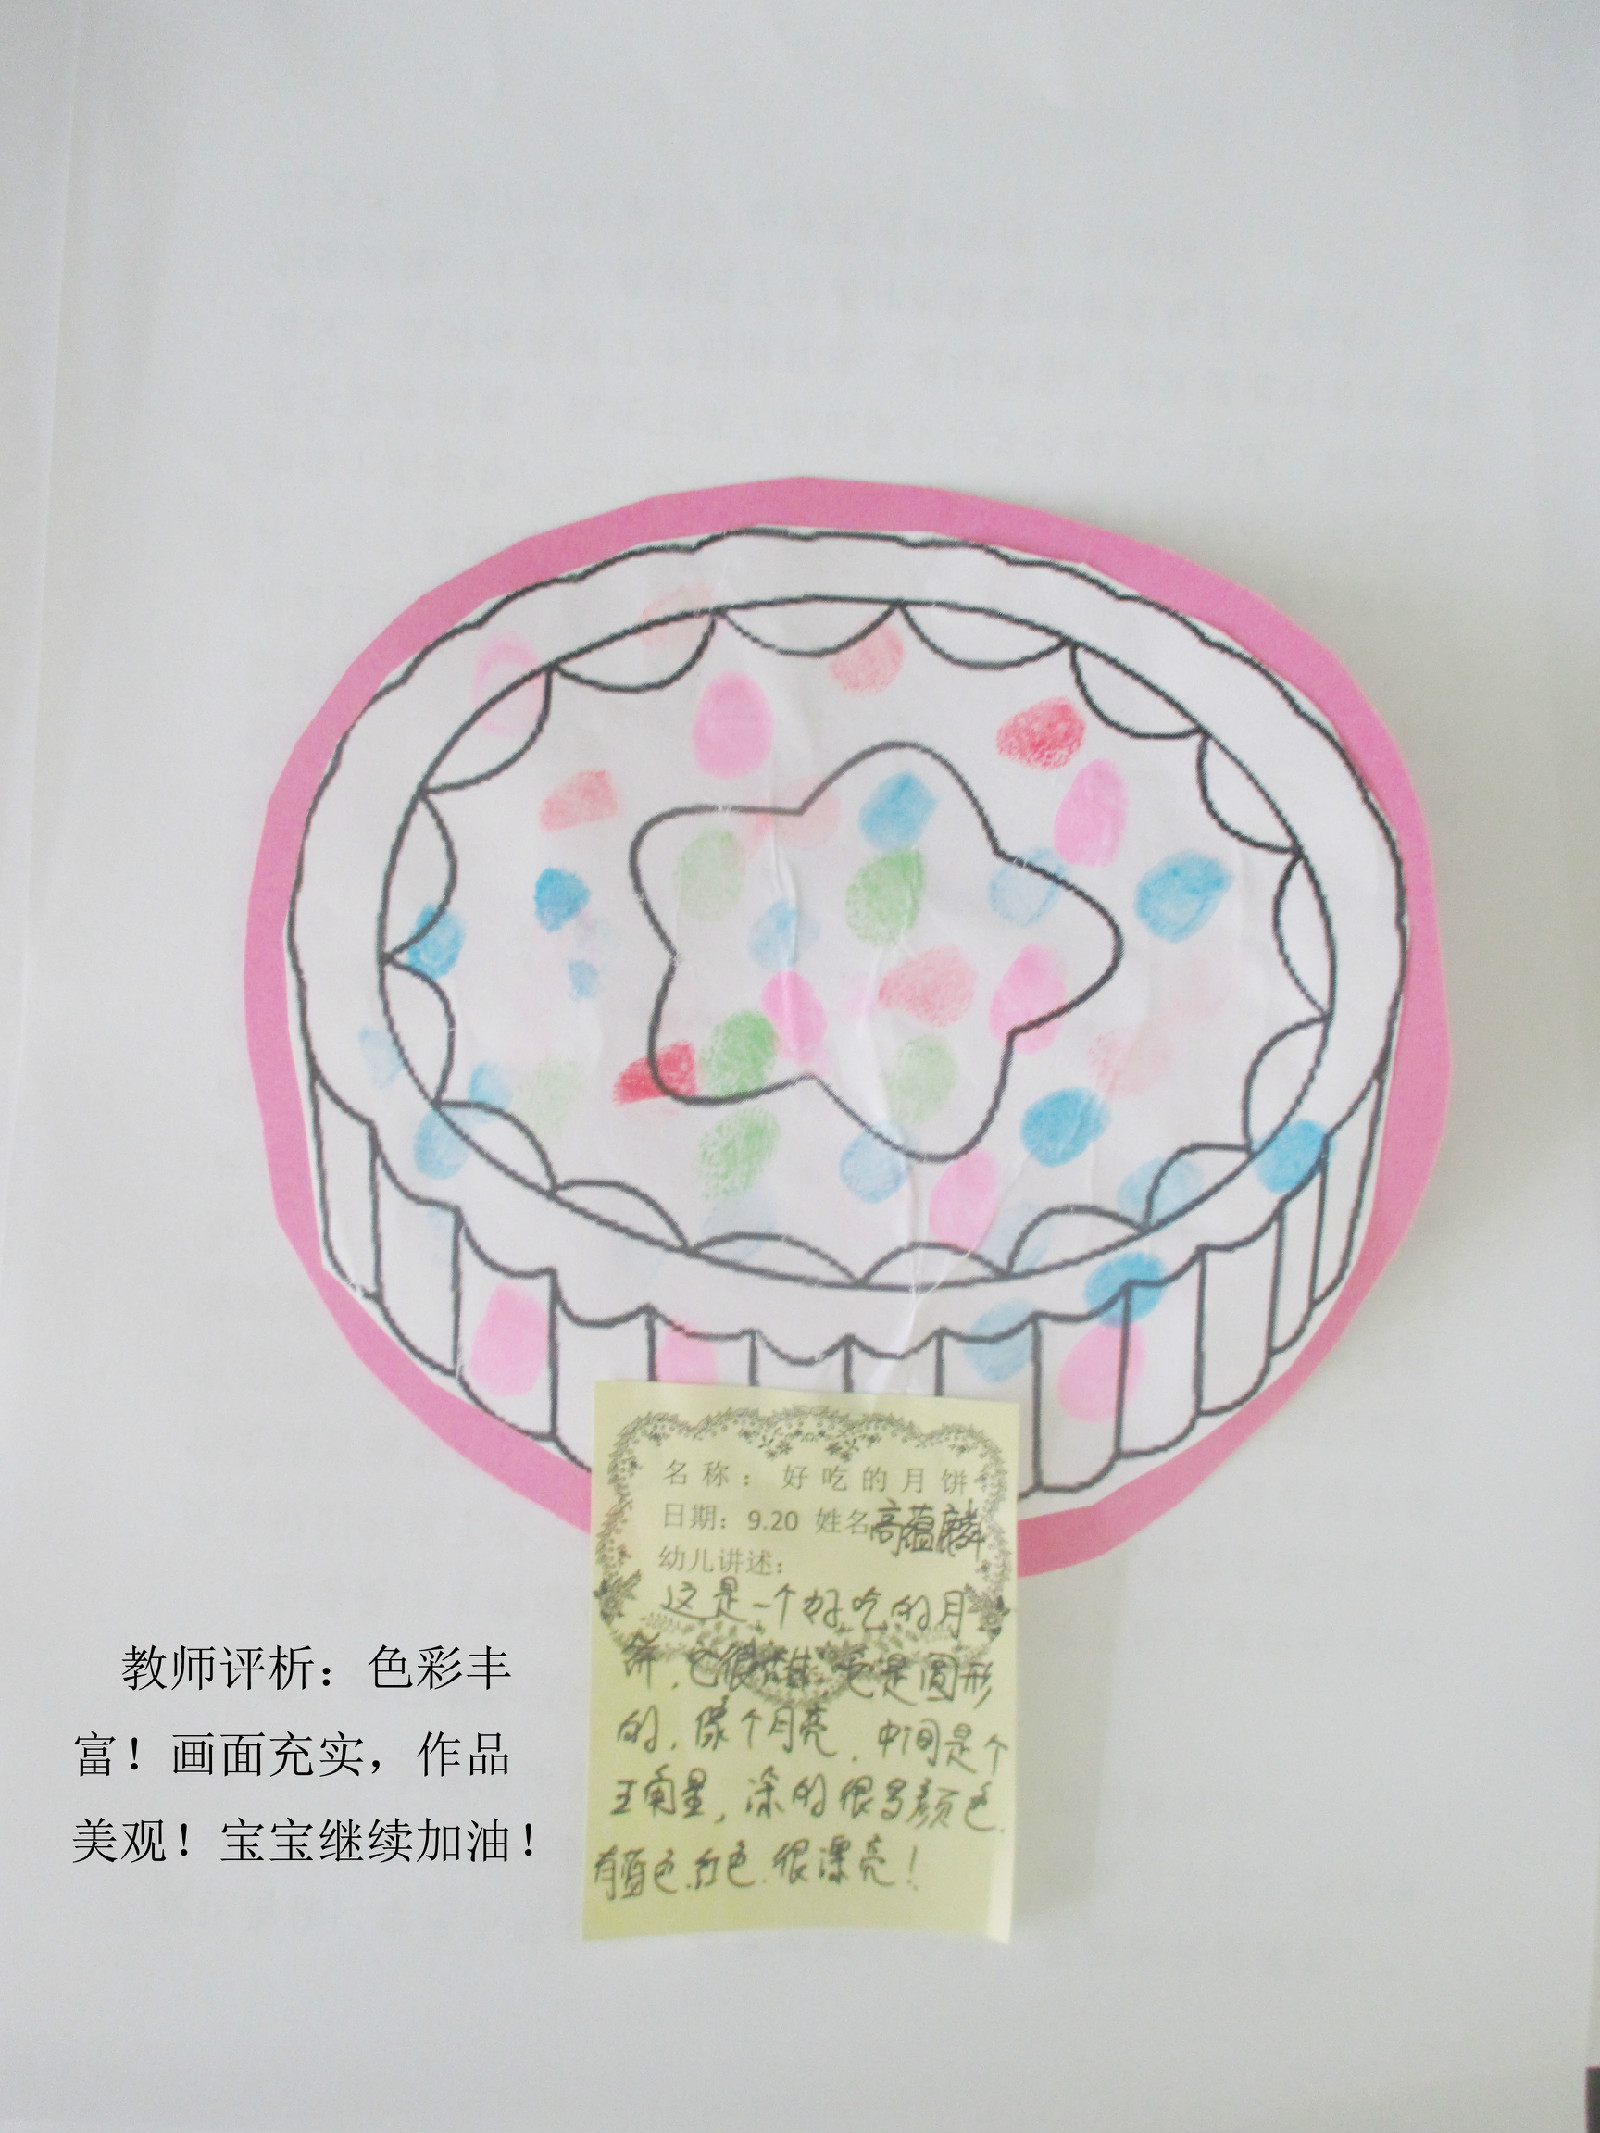 名称：好吃的月饼
日期：9.20 姓名高蕴麟
幼儿讲述：
这是一个好吃的月
饼，它很 它是圆形
的，像个月亮，中间是个
五角星，涂的很多颜色.
有蓝色.红色.很漂亮！
教师评析：色彩丰
富！画面充实，作品
美观！宝宝继续加油！